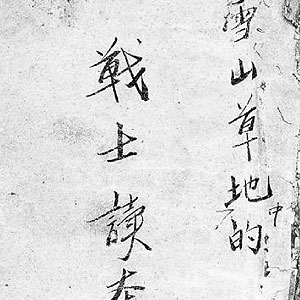 雪山草地的
戰士讀